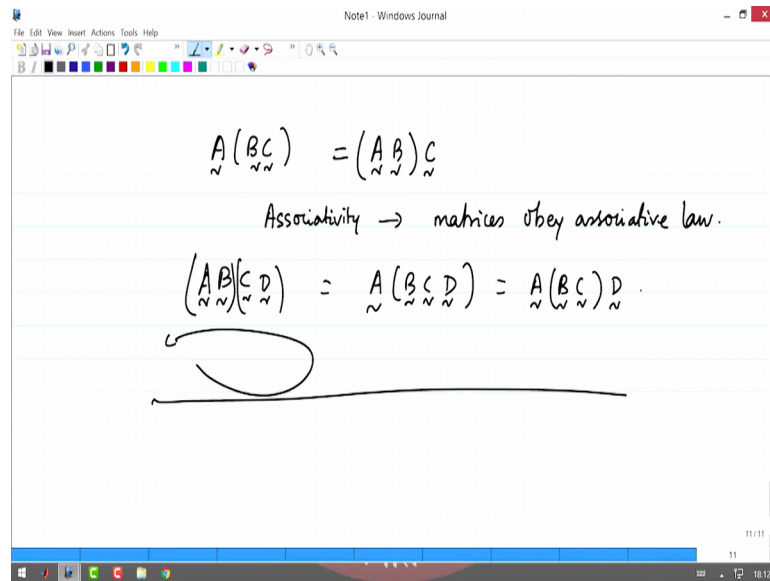 Note1 - Windows Journal
File Edit View Insert Actions Tools Help
B I
A(BC) = (AB)C
Associativity → matrices obey associative law.
(AB)(CD) = A(BCD) = A(BC)D.
11/11
11
18:17